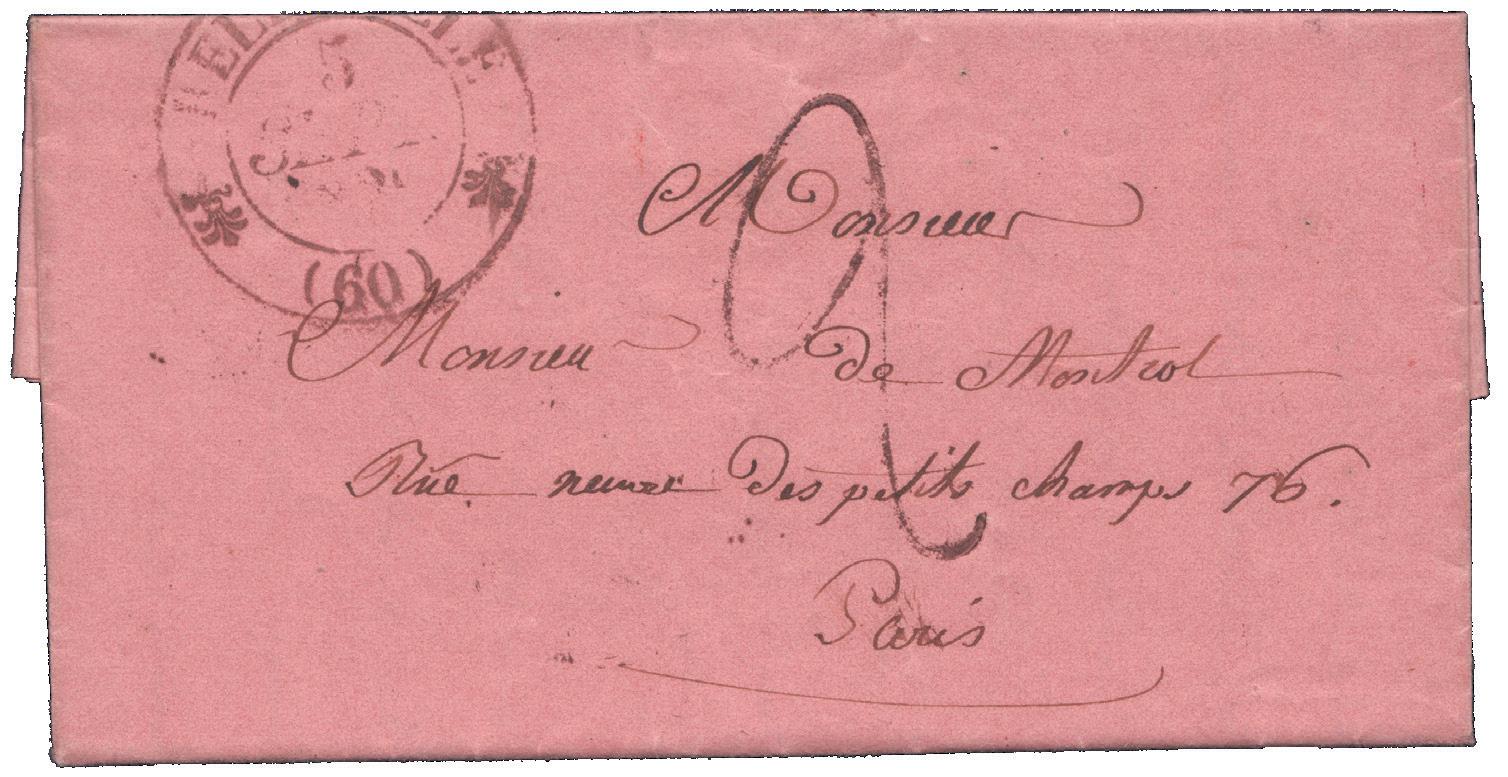 BELLEVILLE
5
SEPT
(60)
2
Monsieur
Monsieur de Montrol
Rue neuve des petits champs 76.
Paris